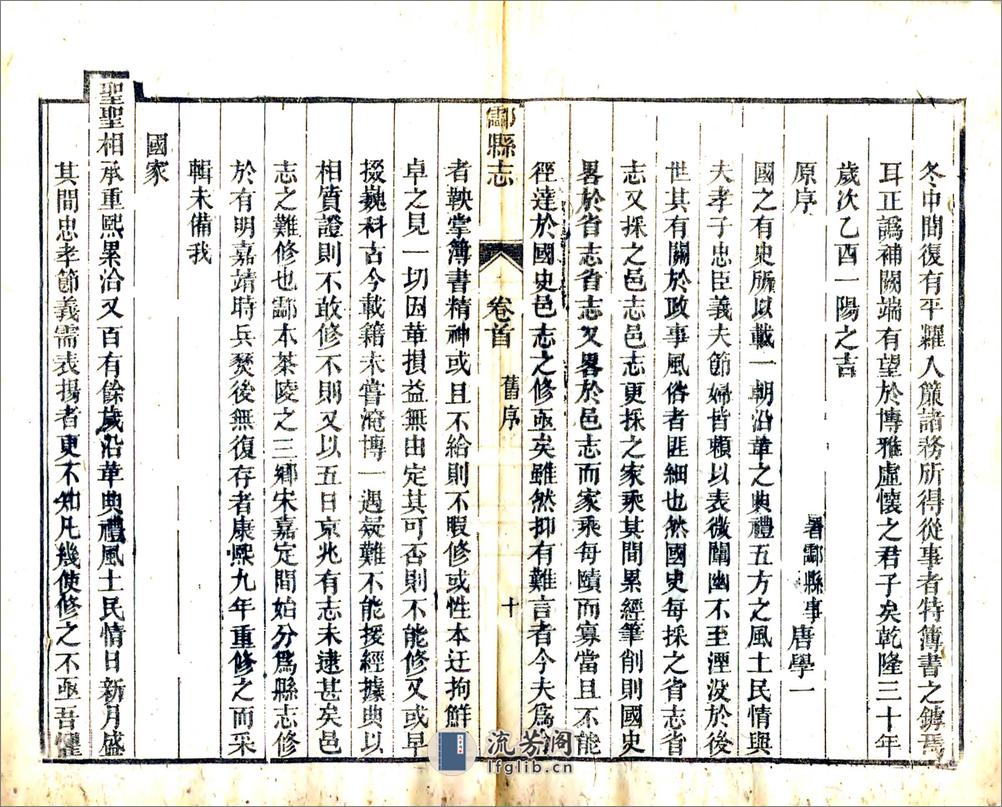 冬中間復有平羅入簾諸務所得從事者特簿書之罅焉
耳正譌補闕端有望於博雅虛懷之君子矣乾隆三十年
歲次乙酉一陽之吉
原序
署酃縣事唐學一
國之有史所以載一朝沿革之典禮五方之風土民情與
夫孝子忠臣義夫節婦皆賴以表微闡幽不至湮没於後
世其有關於政事風俗者匪細也然國史每採之省志省
志又採之邑志邑志更採之家乘其間累經筆削則國史
畧於省志省志又畧於邑志而家乘每賾而寡當且不能
徑達於國史邑志之修亟矣雖然抑有難言者今夫爲
酃縣志
卷首
舊序
十
者鞅掌簿書精神或且不給則不暇修或性本迂拘鮮
卓之見一切因革損益無由定其可否則不能修又或早
掇巍科古今載籍未嘗淹博一遇疑難不能援經據典以
相質證則不敢修不則又以五日京兆有志未逮甚矣邑
志之難修也酃本茶陵之三鄉宋嘉定間始分爲縣志修
於有明嘉靖時兵燹後無復存者康熙九年重修之而采
輯未備我
國家
聖聖相承重熙累洽又百有餘歲沿革典禮風土民情日新月盛
其間忠孝節義需表揚者更不知凡幾使修之不亟吾懼
流芳阁
lfglib.cn